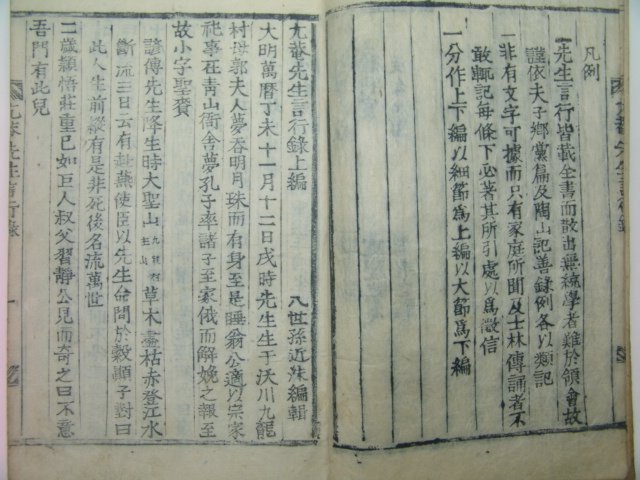 凡例
一先生言行皆載全書而散出無統學者難於領會故
謹依夫子鄉黨篇及陶山記善錄例各以類記
一非有文字可據而只有家庭所聞及士林傳誦者不
敢輒記每條下必著其所引處以爲徵信
一分作上下編以細節爲上編以大節爲下編
尤菴先生言行錄上編
八世孫近洙編輯
大明萬曆丁未十一月十二日戌時先生生于沃川九龍
村母郭夫人夢呑明月珠而有身至是睡翁公適以宗家
祀事在靑山衙舍夢孔子率諸子至家俄而解娩之報至
故小字聖賚
諺傳先生降生時大聖山草木盡枯赤登江水
斷流三日云有赴燕使臣以先生命問於穀顯子對曰
此人生前縱有是非死後名流萬世
二歲穎悟莊重已如巨人叔父習靜公見而奇之曰不意
吾門有此兒
尤菴先生言行錄
一